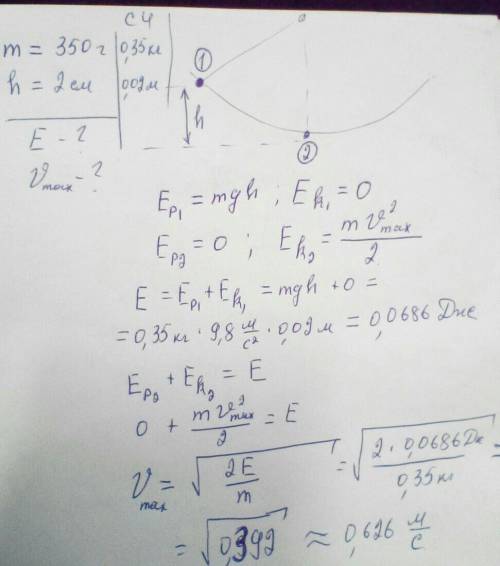 СИ
m = 350 г | 0,35 кг
h = 2 см | 0,02 м
E - ?
v_max - ?
①
h
②
E_p₁ = mgh ; E_k₁ = 0
E_p₂ = 0 ; E_k₂ = m v²_max / 2
E = E_p₁ + E_k₁ = mgh + 0 =
= 0,35 кг · 9,8 м/с² · 0,02 м = 0,0686 Дж
E_p₂ + E_k₂ = E
0 + m v²_max / 2 = E
v_max = √(2E / m) = √(2 · 0,0686 Дж / 0,35 кг) =
= √0,392 ≈ 0,626 м/с